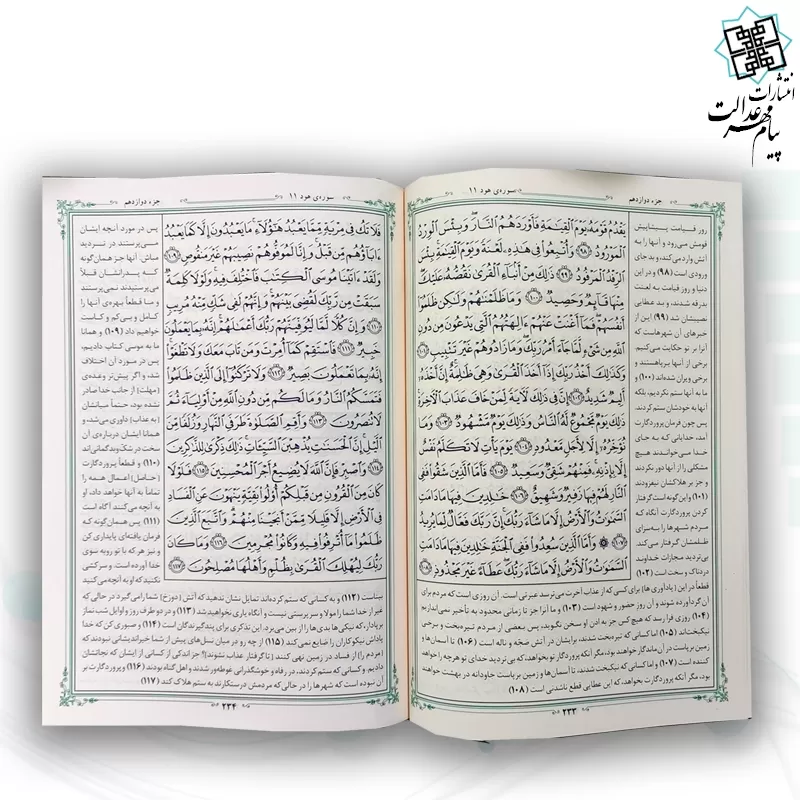 انتشارات
پیام مهر عدالت
جزء دوازدهم
سوره‌ی هود ۱۱
يَقْدُمُ قَوْمَهُ يَوْمَ الْقِيٰمَةِ فَأَوْرَدَهُمُ النَّارَ وَبِئْسَ الْوِرْدُ
الْمَوْرُودُ ﴿٩٨﴾ وَأُتْبِعُوا فِي هٰذِهِ لَعْنَةً وَيَوْمَ الْقِيٰمَةِ بِئْسَ
الرِّفْدُ الْمَرْفُودُ ﴿٩٩﴾ ذٰلِكَ مِنْ أَنْبَاءِ الْقُرىٰ نَقُصُّهُ عَلَيْكَ
مِنْهَا قَائِمٌ وَحَصِيدٌ ﴿١٠٠﴾ وَمَا ظَلَمْنٰهُمْ وَلٰكِنْ ظَلَمُوا
أَنْفُسَهُمْ فَمَا أَغْنَتْ عَنْهُمْ ءَالِهَتُهُمُ الَّتِي يَدْعُونَ مِنْ دُونِ
اللَّهِ مِنْ شَيْءٍ لَمَّا جَاءَ أَمْرُ رَبِّكَ وَمَا زَادُوهُمْ غَيْرَ تَتْبِيبٍ ﴿١٠١﴾
وَكَذٰلِكَ أَخْذُ رَبِّكَ إِذَا أَخَذَ الْقُرىٰ وَهِيَ ظٰلِمَةٌ إِنَّ أَخْذَهُ
أَلِيمٌ شَدِيدٌ ﴿١٠٢﴾ إِنَّ فِي ذٰلِكَ لَآيَةً لِمَنْ خَافَ عَذَابَ الْآخِرَةِ
ذٰلِكَ يَوْمٌ مَجْمُوعٌ لَهُ النَّاسُ وَذٰلِكَ يَوْمٌ مَشْهُودٌ ﴿١٠٣﴾ وَمَا
نُؤَخِّرُهُ إِلَّا لِأَجَلٍ مَعْدُودٍ ﴿١٠٤﴾ يَوْمَ يَأْتِ لَا تَكَلَّمُ نَفْسٌ
إِلَّا بِإِذْنِهِ فَمِنْهُمْ شَقِيٌّ وَسَعِيدٌ ﴿١٠٥﴾ فَأَمَّا الَّذِينَ شَقُوا فَفِي
النَّارِ لَهُمْ فِيهَا زَفِيرٌ وَشَهِيقٌ ﴿١٠٦﴾ خٰلِدِينَ فِيهَا مَا دَامَتِ
السَّمٰوٰتُ وَالْأَرْضُ إِلَّا مَا شَاءَ رَبُّكَ إِنَّ رَبَّكَ فَعَّالٌ لِمَا يُرِيدُ
﴿١٠٧﴾ وَأَمَّا الَّذِينَ سُعِدُوا فَفِي الْجَنَّةِ خٰلِدِينَ فِيهَا مَا دَامَتِ
السَّمٰوٰتُ وَالْأَرْضُ إِلَّا مَا شَاءَ رَبُّكَ عَطَاءً غَيْرَ مَجْذُوذٍ ﴿١٠٨﴾
روز قیامت پیشاپیش
قومش می‌رود و آنها را به
آتش وارد می‌کند، و بد جای
ورودی است (۹۸) و در این
دنیا و روز قیامت به لعنت
بدرقه شدند، و بد عطایی
نصیبشان شد (۹۹) این از
خبرهای آن شهرهاست که
آنرا بر تو حکایت می‌کنیم
برخی از آنها برپا هستند، و
برخی ویران شده‌اند (۱۰۰) و
ما به آنها ستم نکردیم، بلکه
آنها به خودشان ستم کردند.
پس چون فرمان پروردگارت
آمد، خدایانی که به جای
خدا می‌خواندند هیچ
مشکلی را از آنها دور نکردند
و جز بر هلاکشان نیفزودند
(۱۰۱) و این گونه است گرفتار
کردن پروردگارت آنگاه که
مردم شهرها را به سزای
ظلمشان گرفتار می‌کند.
بی‌تردید مجازات خداوند
دردناک و سخت است (۱۰۲)
قطعاً در این (یادآوری ها) برای کسی که از عذاب آخرت می‌ترسد عبرتی است. آن روزی است که مردم برای
آن گردآورده شوند و آن روز حضور و شهود است (۱۰۳) و ما آنرا جز تا زمانی محدود به تأخیر نمی‌اندازیم
(۱۰۴) روزی فرا رسد که هیچ کس جز به اذن او سخن نگوید، پس بعضی از مردم تیره‌بخت و برخی
نیکبخت‌اند (۱۰۵) اما کسانی که تیره‌بخت شدند، برایشان در آتش ضجّه و ناله است (۱۰۶) تا آسمان‌ها و
زمین برپاست در آن ماندگار خواهند بود، مگر آنکه پروردگارت بخواهد، که بی‌تردید خدای تو هرچه را خواهد
کننده است (۱۰۷) و اما کسانی که نیکبخت شدند، تا آسمان‌ها و زمین برپاست جاودانه در بهشت خواهند
بود، مگر آنکه پروردگارت بخواهد، که این عطایی قطع ناشدنی است (۱۰۸)
۲۳۳
سوره‌ی هود ۱۱
جزء دوازدهم
فَلَا تَكُ فِي مِرْيَةٍ مِمَّا يَعْبُدُ هٰؤُلَاءِ مَا يَعْبُدُونَ إِلَّا كَمَا يَعْبُدُ
ءَابَاؤُهُمْ مِنْ قَبْلُ وَإِنَّا لَمُوَفُّوهُمْ نَصِيبَهُمْ غَيْرَ مَنْقُوصٍ ﴿١٠٩﴾
وَلَقَدْ ءَاتَيْنَا مُوسَى الْكِتٰبَ فَاخْتُلِفَ فِيهِ وَلَوْلَا كَلِمَةٌ
سَبَقَتْ مِنْ رَبِّكَ لَقُضِيَ بَيْنَهُمْ وَإِنَّهُمْ لَفِي شَكٍّ مِنْهُ مُرِيبٍ
﴿١١٠﴾ وَإِنَّ كُلًّا لَمَّا لَيُوَفِّيَنَّهُمْ رَبُّكَ أَعْمٰلَهُمْ إِنَّهُ بِمَا يَعْمَلُونَ
خَبِيرٌ ﴿١١١﴾ فَاسْتَقِمْ كَمَا أُمِرْتَ وَمَنْ تَابَ مَعَكَ وَلَا تَطْغَوْا
إِنَّهُ بِمَا تَعْمَلُونَ بَصِيرٌ ﴿١١٢﴾ وَلَا تَرْكَنُوا إِلَى الَّذِينَ ظَلَمُوا
فَتَمَسَّكُمُ النَّارُ وَمَا لَكُمْ مِنْ دُونِ اللَّهِ مِنْ أَوْلِيَاءَ ثُمَّ
لَا تُنْصَرُونَ ﴿١١٣﴾ وَأَقِمِ الصَّلٰوةَ طَرَفَيِ النَّهَارِ وَزُلَفًا مِنَ
الَّيْلِ إِنَّ الْحَسَنٰتِ يُذْهِبْنَ السَّيِّـَٔاتِ ذٰلِكَ ذِكْرىٰ لِلذّٰكِرِينَ
﴿١١٤﴾ وَاصْبِرْ فَإِنَّ اللَّهَ لَا يُضِيعُ أَجْرَ الْمُحْسِنِينَ ﴿١١٥﴾ فَلَوْلَا
كَانَ مِنَ الْقُرُونِ مِنْ قَبْلِكُمْ أُولُوا بَقِيَّةٍ يَنْهَوْنَ عَنِ الْفَسَادِ
فِي الْأَرْضِ إِلَّا قَلِيلًا مِمَّنْ أَنْجَيْنَا مِنْهُمْ وَاتَّبَعَ الَّذِينَ
ظَلَمُوا مَا أُتْرِفُوا فِيهِ وَكَانُوا مُجْرِمِينَ ﴿١١٦﴾ وَمَا كَانَ
رَبُّكَ لِيُهْلِكَ الْقُرىٰ بِظُلْمٍ وَأَهْلُهَا مُصْلِحُونَ ﴿١١٧﴾
پس در مورد آنچه ایشان
می‌پرستند در تردید
مباش. آنها جز همان گونه
که پدرانشان قبلاً
می‌پرستیدند نمی‌پرستند
و ما قطعاً بهره‌ی آنها را
کامل و بی‌کم و کاست
خواهیم داد (۱۰۹) و همانا
ما به موسی کتاب دادیم،
پس در مورد آن اختلاف
شد، و اگر پیش‌تر وعده‌ی
(مهلت) از جانب خدا صادر
نشده بود، حتماً میانشان
(به عذاب) داوری می‌شد، و
همانا ایشان درباره‌ی آن
سخت در شک و بدگمانی‌اند
(۱۱۰) و قطعاً پروردگارت
(حاصل) اعمال همه را
تماماً به آنها خواهد داد، او
به آنچه می‌کنند آگاه است
(۱۱۱) پس همان‌گونه که
فرمان یافته‌ای پایداری کن
و نیز هر که با تو رو به سوی
خدا آورده است. و سرکشی
نکنید که او به آنچه می‌کنید
بیناست (۱۱۲) و به کسانی که ستم کرده‌اند تمایل نشان ندهید که آتش (دوزخ) شما را می‌گیرد در حالی که
غیر از خدا شما را مولا و سرپرستی نیست و آنگاه یاری نخواهید شد (۱۱۳) و در دو طرف روز و اوایل شب نماز
برپا دار، که نیکی‌ها بدی‌ها را از بین می‌برد. این تذکری برای پندگیرندگان است (۱۱۴) و صبوری کن که خدا
پاداش نیکوکاران را ضایع نمی‌کند (۱۱۵) از چه رو در میان نسل‌های پیش از شما خیراندیشانی نبودند که
(مردم را) از فساد در زمین نهی کنند (تا گرفتار عذاب نشوند)؟ جز اندکی از کسانی از ایشان که نجاتشان
دادیم. و کسانی که ستم کردند، در رفاه و خوشگذرانی غوطه‌ور شدند و اهل گناه بودند (۱۱۶) و پروردگارت بر
آن نبوده است که شهرها را در حالی که مردمش درستکارند به ستم هلاک کند (۱۱۷)
۲۳۴